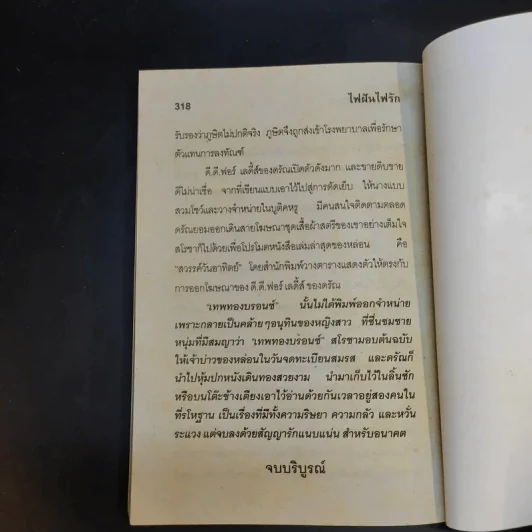 318
ไฟฝันไฟรัก
รับรองว่าภูษิตไม่ปกติจริง ภูษิตจึงถูกส่งเข้าโรงพยาบาลเพื่อรักษา
ตัวแทนการลงทัณฑ์
ดี.ดี.ฟอร์ เลดี้ส์ของดรัณเปิดตัวดังมาก และขายดิบขาย
ดีไม่น่าเชื่อ จากที่เขียนแบบเอาไว้ไปสู่การตัดเย็บ ให้นางแบบ
สวมโชว์และวางจำหน่ายในบูติคหรู มีคนสนใจติดตามตลอด
ดรัณยอมออกเดินสายโฆษณาชุดเสื้อผ้าสตรีของเขาอย่างเต็มใจ
สโรชาก็ไปด้วยเพื่อโปรโมตหนังสือเล่มล่าสุดของหล่อน คือ
“สวรรค์วันอาทิตย์” โดยสำนักพิมพ์วางตารางแสดงตัวให้ตรงกับ
การออกโฆษณาของ ดี.ดี.ฟอร์ เลดี้ส์ ของดรัณ
“เทพทองบรอนซ์” นั้นไม่ได้พิมพ์ออกจำหน่าย
เพราะกลายเป็นคล้ายๆอนุทินของหญิงสาว ที่ชื่นชมชาย
หนุ่มที่มีสมญาว่า “เทพทองบรอนซ์” สโรชามอบต้นฉบับ
ให้เจ้าบ่าวของหล่อนในวันจดทะเบียนสมรส และดรัณก็
นำไปหุ้มปกหนังเดินทองสวยงาม นำมาเก็บไว้ในลิ้นชัก
หรือบนโต๊ะข้างเตียงเอาไว้อ่านด้วยกันเวลาอยู่สองคนใน
ที่รโหฐาน เป็นเรื่องที่มีทั้งความริษยา ความกลัว และหวั่น
ระแวง แต่จบลงด้วยสัญญารักแนบแน่น สำหรับอนาคต
จบบริบูรณ์